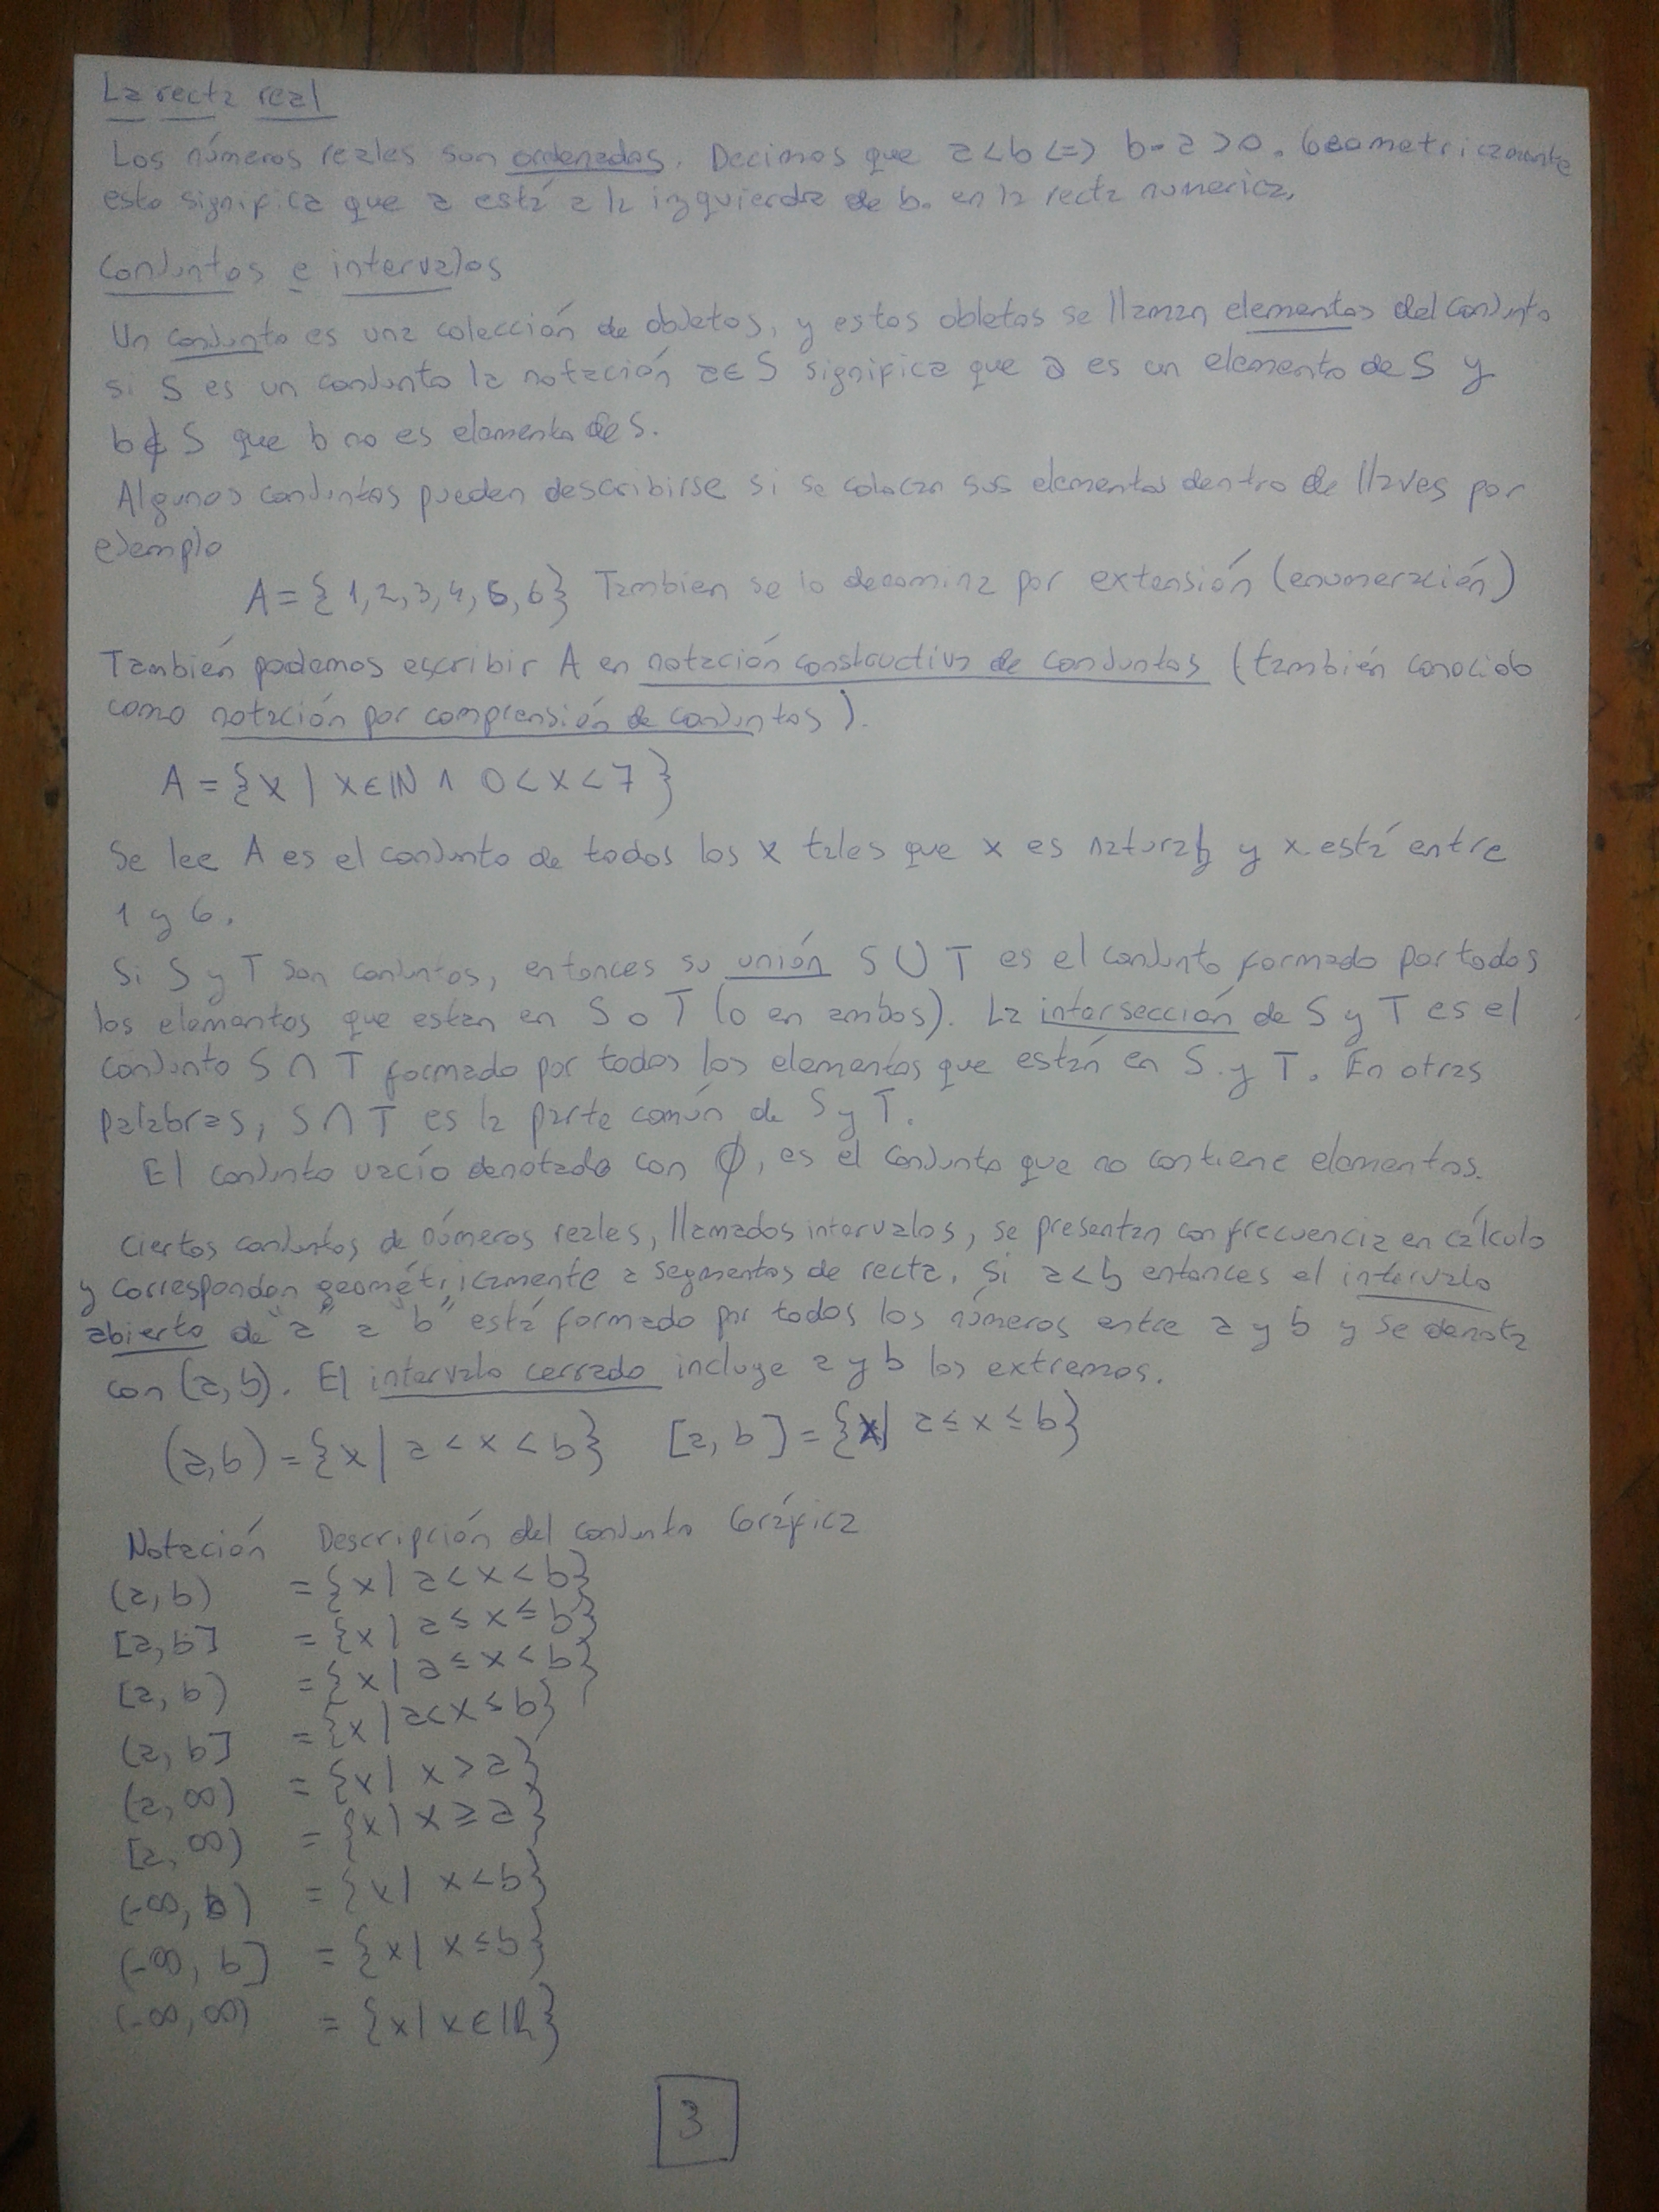 La recta real
Los números reales son ordenados. Decimos que a<b<=> b-a>0. Geometricamente
esto significa que a está a la izquierda de b. en la recta numerica.
Conjuntos e intervalos
Un conjunto es una colección de objetos, y estos objetos se llaman elementos del conjunto
si S es un conjunto la notación a∈S significa que a es un elemento de S y
b∉S que b no es elemento de S.
Algunos conjuntos pueden describirse si se colocan sus elementos dentro de llaves por
ejemplo
A={1,2,3,4,5,6} Tambien se lo denomina por extensión (enumeración)
También podemos escribir A en notación constructiva de conjuntos (también conocido
como notación por comprensión de conjuntos).
A={x | x∈ℕ ∧ 0<x<7}
Se lee A es el conjunto de todos los x tales que x es natural y x está entre
1 y 6.
Si S y T son conjuntos, entonces su unión S∪T es el conjunto formado por todos
los elementos que estan en S o T (o en ambos). La intersección de S y T es el
conjunto S∩T formado por todos los elementos que están en S y T. En otras
palabras, S∩T es la parte común de S y T.
El conjunto vacío denotado con ∅, es el conjunto que no contiene elementos.
Ciertos conjuntos de números reales, llamados intervalos, se presentan con frecuencia en cálculo
y corresponden geométricamente a segmentos de recta. Si a<b entonces el intervalo
abierto de "a" a "b" está formado por todos los números entre a y b y se denota
con (a,b). El intervalo cerrado incluye a y b los extremos.
(a,b)={x| a<x<b} [a,b]={x| a≤x≤b}
Notación Descripción del conjunto Gráfica
(a,b) ={x| a<x<b}
[a,b] ={x| a≤x≤b}
[a,b) ={x| a≤x<b}
(a,b] ={x| a<x≤b}
(a,∞) ={x| x>a}
[a,∞) ={x| x≥a}
(-∞,b) ={x| x<b}
(-∞,b] ={x| x≤b}
(-∞,∞) ={x| x∈ℝ}
3